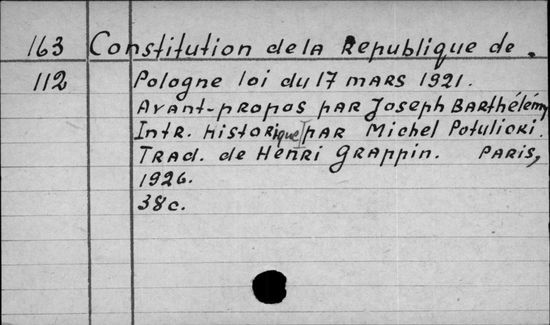 163 Constitution de la Republique de.
112 Pologne loi du 17 mars 1921.
Avant-propos par Joseph Barthélémy
Intr. historique par Michel Potulicki.
Trad. de Henri Grappin. Paris,
1926.
38c.